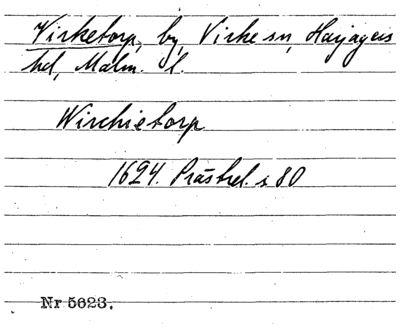 Virketorp, by, Virke sn, Harjagers
hd, Malm. l.
Wirchietorp
1624. Prästrel. s 80
Nr 5623.